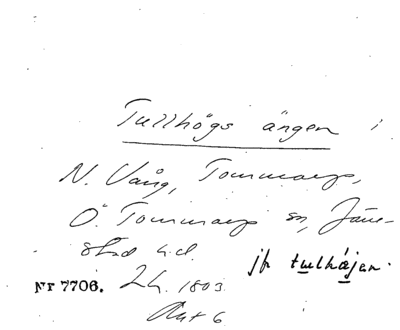 Tullhögs ängen i
N. Vång, Tommarp,
Ö. Tommarp sn, Järre-
stad hd.
jfr tullhæjan.
Nr 7706. LH. 1803
Akt 6